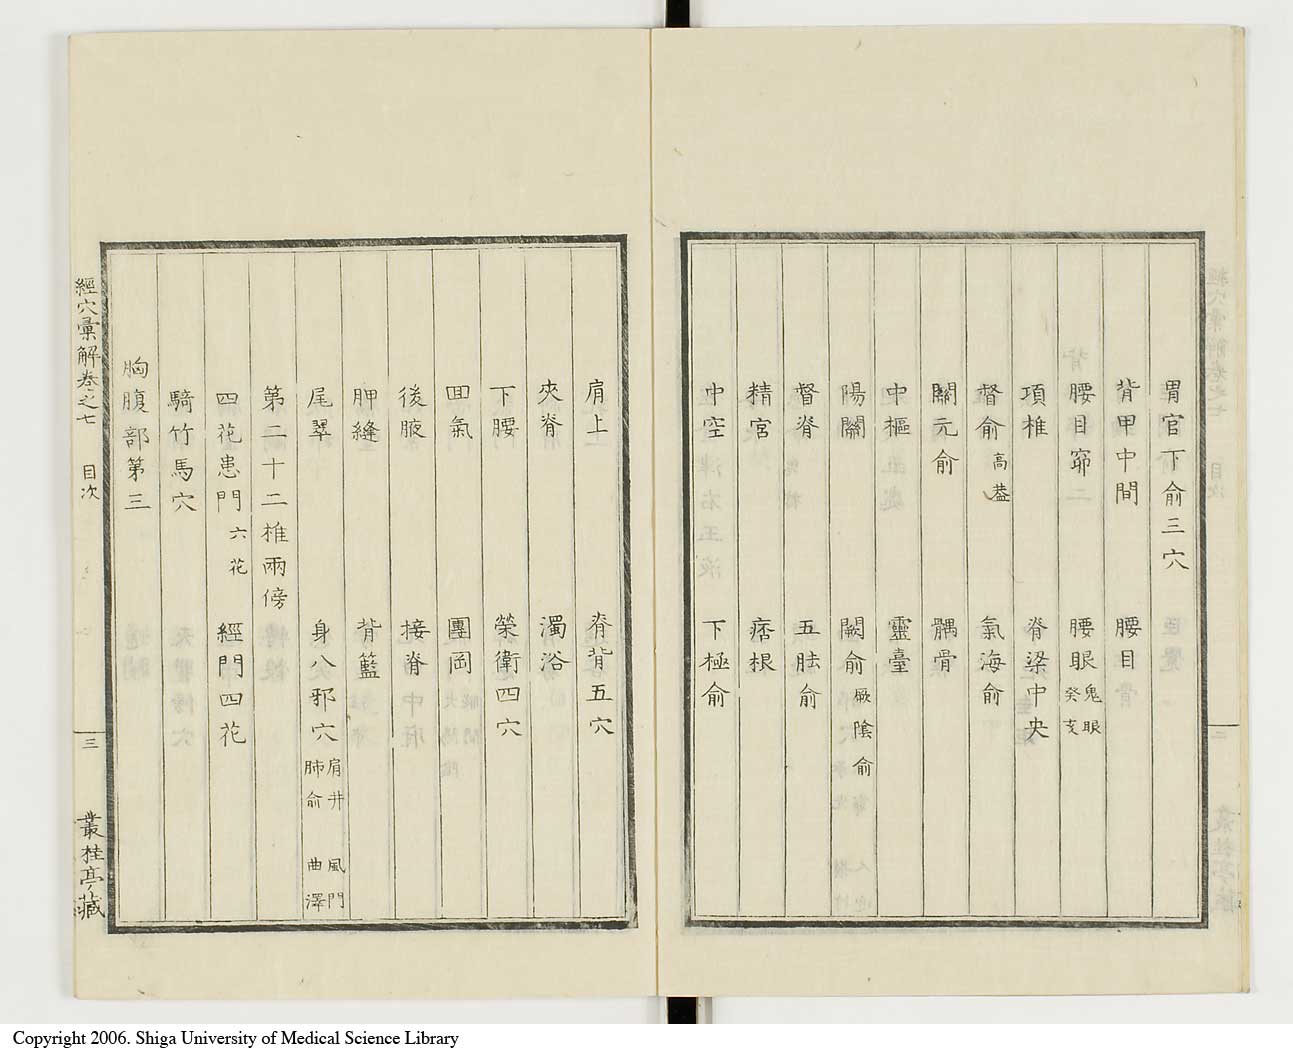 胃官下俞三穴
背甲中間 腰目
腰目窌 腰眼 鬼眼 癸亥
項椎 脊梁中央
督俞 高葢 氣海俞
關元俞 髃骨
中樞 靈臺
陽關 闕俞 厥陰俞
督脊 五胠俞
精宮 痞根
中空 下極俞
肩上 脊背五穴
夾脊 濁浴
下腰 榮衛四穴
回氣 團岡
後腋 接脊
胛縫 背籃
尾翠 身八邪穴 肩井 風門 肺俞 曲澤
第二十二椎兩傍
四花患門 六花 經門四花
騎竹馬穴
胸腹部第三
經穴彙解卷之七 目次 三 叢桂亭藏
Copyright 2006. Shiga University of Medical Science Library